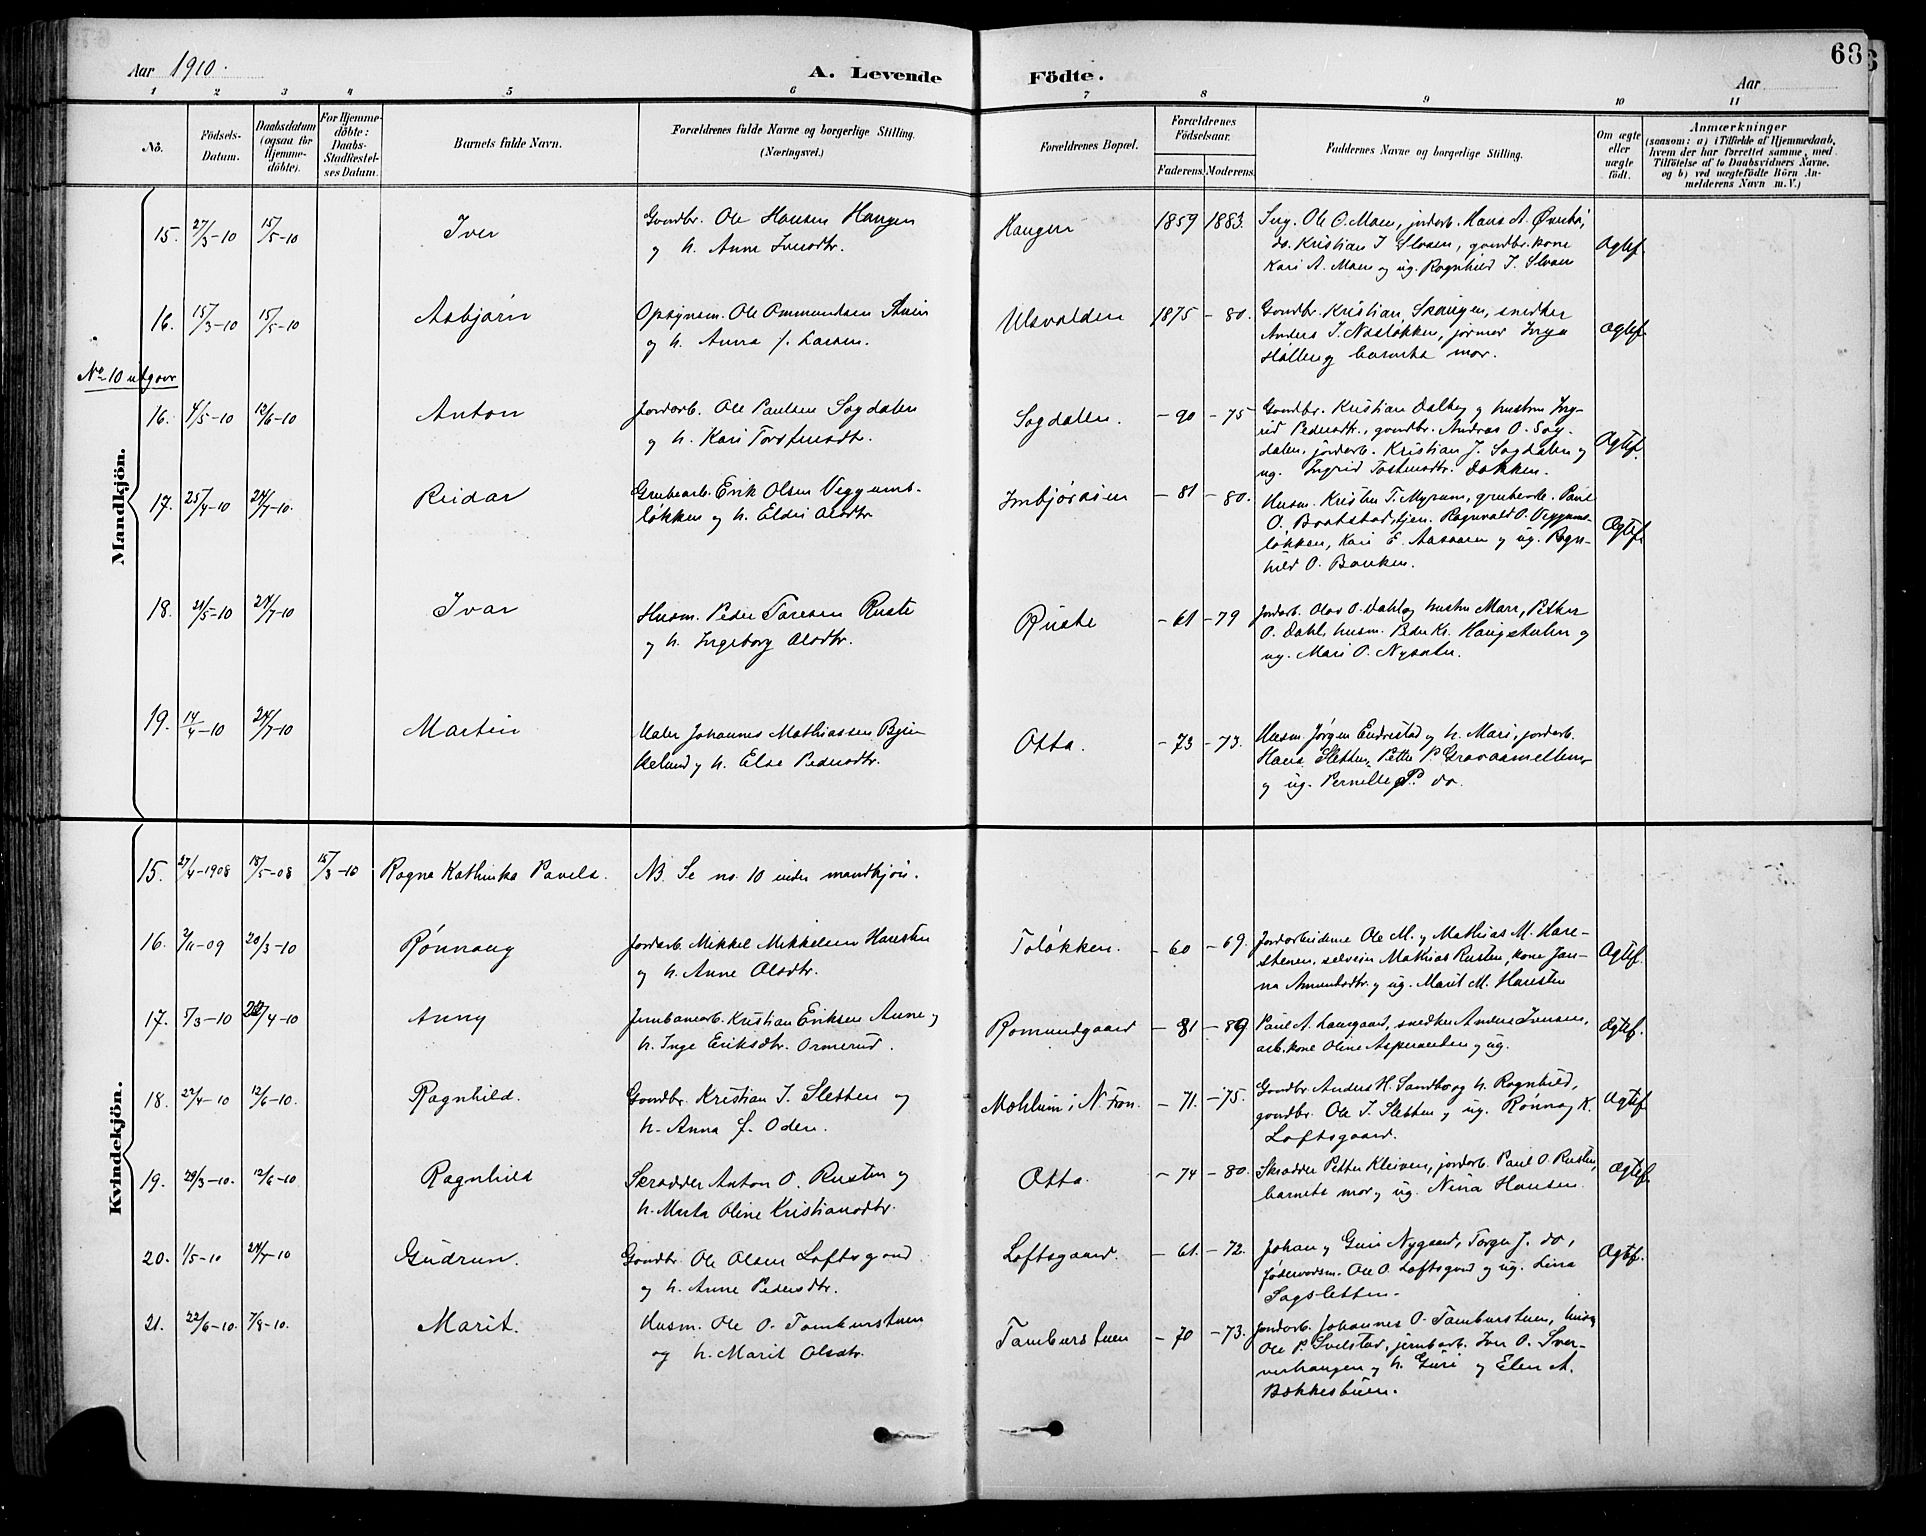 Aar 1910.
A. Levende Födte.
68
Aar
1 2 3 4 5 6 7 8 9 10 11
No.
Födsels-Datum.
Daabsdatum (ogsaa for Hjemmedöbte).
For Hjemmedöbte: Daabs-Stadfæstelses Datum.
Barnets fulde Navn.
Forældrenes fulde Navne og borgerlige Stilling. (Næringsvei.)
Forældrenes Bopæl.
Forældrenes Födselsaar.
Faderens. Moderens.
Faddernes Navne og borgerlige Stilling.
Om ægte eller uægte födt.
Anmærkninger
(saasom: a) i Tilfælde af Hjemmedaab, hvem der har forrettet samme, med Tilföielse af to Daabsvidners Navne, og b) ved uægtefödte Börn Anmelderens Navn m. V.)
Mandkjön.
15. 27/3-10 15/5-10 Iver
Gaardbr. Ole Hansen Haugen
og h. Anne Iversdtr.
Haugen 1859 1883.
Ole O. Moen, jordarb. Hans A.
do. Kristian I. Sloen, gaardbr. kone
Kari A. Moen og ug. Ragnhild I. Sloen
Ægtef.
16. 15/3-10 15/5-10 Asbjørn
Opsynsm. Ole Ommundsen
og h. Anna f. Larsen.
Ulvolden 1875 - 80.
Gaardbr. Kristian Skaugen, snedker
Anders I. Nasløkken, jormor Inga
og barnets mor.
Ægtef.
No 10 utgaar
16. 4/5-10 12/6-10 Anton
Jordarb. Ole Paulsen Sogdalen
og h. Kari Torstensdtr.
Sogdalen. - 90 - 75
Gaardbr. Kristian Dalby og hustru Ing-
rid Pedersdtr., gaardbr. Andras O. Sog-
dalen, jordarb. Kristian J. Sogdalen og
ug. Ingrid Tostensdtr. Dokken.
Ægtef.
17. 25/4-10 24/7-10. Reidar
Grubearb. Erik Olsen Veggums-
løkken og h. Eldri Olsdtr.
Imbjøråsen - 81 - 80.
Husm. Kristen T. Myrum, grubearb. Paul
O. Baatstad, tjen. Ragnvald O. Veggums-
løkken, Kari E. Aasaaren og ug. Ragn-
hild O. Bakken.
Ægtef.
18. 21/5-10 24/7-10 Ivar
Husm. Peder Taresen Ruste
og h. Ingeborg Olsdtr.
Ruste - 61 - 79
Jordarb. Olav O. Dahl og hustru Mari, Petter
O. Dahl, husm. Peder Kr. Haugstulen og
ug. Mari O. Nysæter.
19. 14/4-10 24/7-10 Martin
Maler Johannes Mathiassen Bjø
kelund og h. Else Pedersdtr.
Otta. - 73 - 73.
Husm. Jørgen Endrestad og h. Mari, jordarb.
Hans Sletten, Petter P. Graaamellem
og ug. Pernille P. do.
Kvindekjön.
15. 27/4-1908 18/5-08 15/3-10 Ragna Kathinka Pavels.
NB. Se no. 10 under mandkjøn.
16. 2/11-09 20/3-10 Rønnaug
Jordarb. Mikkel Mikkelsen Haresten
og h. Anne Olsdtr.
Toløkken. - 60 - 69.
Jordarbeiderne Ole M. og Mathias M. Hare-
stenen, selveier Mathias Rusten, kone Jan-
na Amundsdtr. og ug. Marit M. Haresten
Ægtef.
17. 5/3-10 /4-10 Anny
Jernbanearb. Kristian Eriksen Aune og
h. Inga Eriksdtr. Ormerud.
Romundgaard - 81 - 89
Paul A. Laurgaard, snedker Anders Iversen,
arb. kone Oline Aspesæteren og ug.
Ægtef.
18. 22/4-10 12/6-10. Ragnhild.
Gaardbr. Kristian I. Sletten og
h. Anna f. Oden.
Mæhlum i N. Fron. - 71. - 75.
Gaardbr. Anders H. Sandbo og h. Ragnhild,
gaardbr. Ole I. Sletten og ug. Rønnog K.
Loftsgaard.
Ægtef.
19. 20/3-10. 12/6-10 Ragnhild
Skrædder Anton O. Rusten og
h. Marta Oline Kristiansdtr.
Otta. - 74 - 80.
Skrædder Petter Kleiven, jordarb. Paul O. Rusten,
barnets mor og ug. Nina Hansen.
Ægtef.
20. 1/5-10 24/7-10 Gudrun.
Gaardbr. Ole Olsen Loftsgaard
og h. Anne Pedersdtr.
Loftsgaard. - 61. - 72.
Johan og Guri Nygaard, Torger J. do,
Ole O. Loftsgard og ug. Lina
Sagsletten.
Ægtef.
21. 22/6-10. 7/8-10. Marit.
Husm. Ole O. Tamburstuen
og h. Marit Olsdtr.
Tamburstuen - 70 - 73.
Jordarb. Johannes O. Tamburstuen, husm.
Ole P. Svelstad, jernbarb. Iver O. Sver-
verhaugen og h. Guri og Elen A.
Bækkestuen.